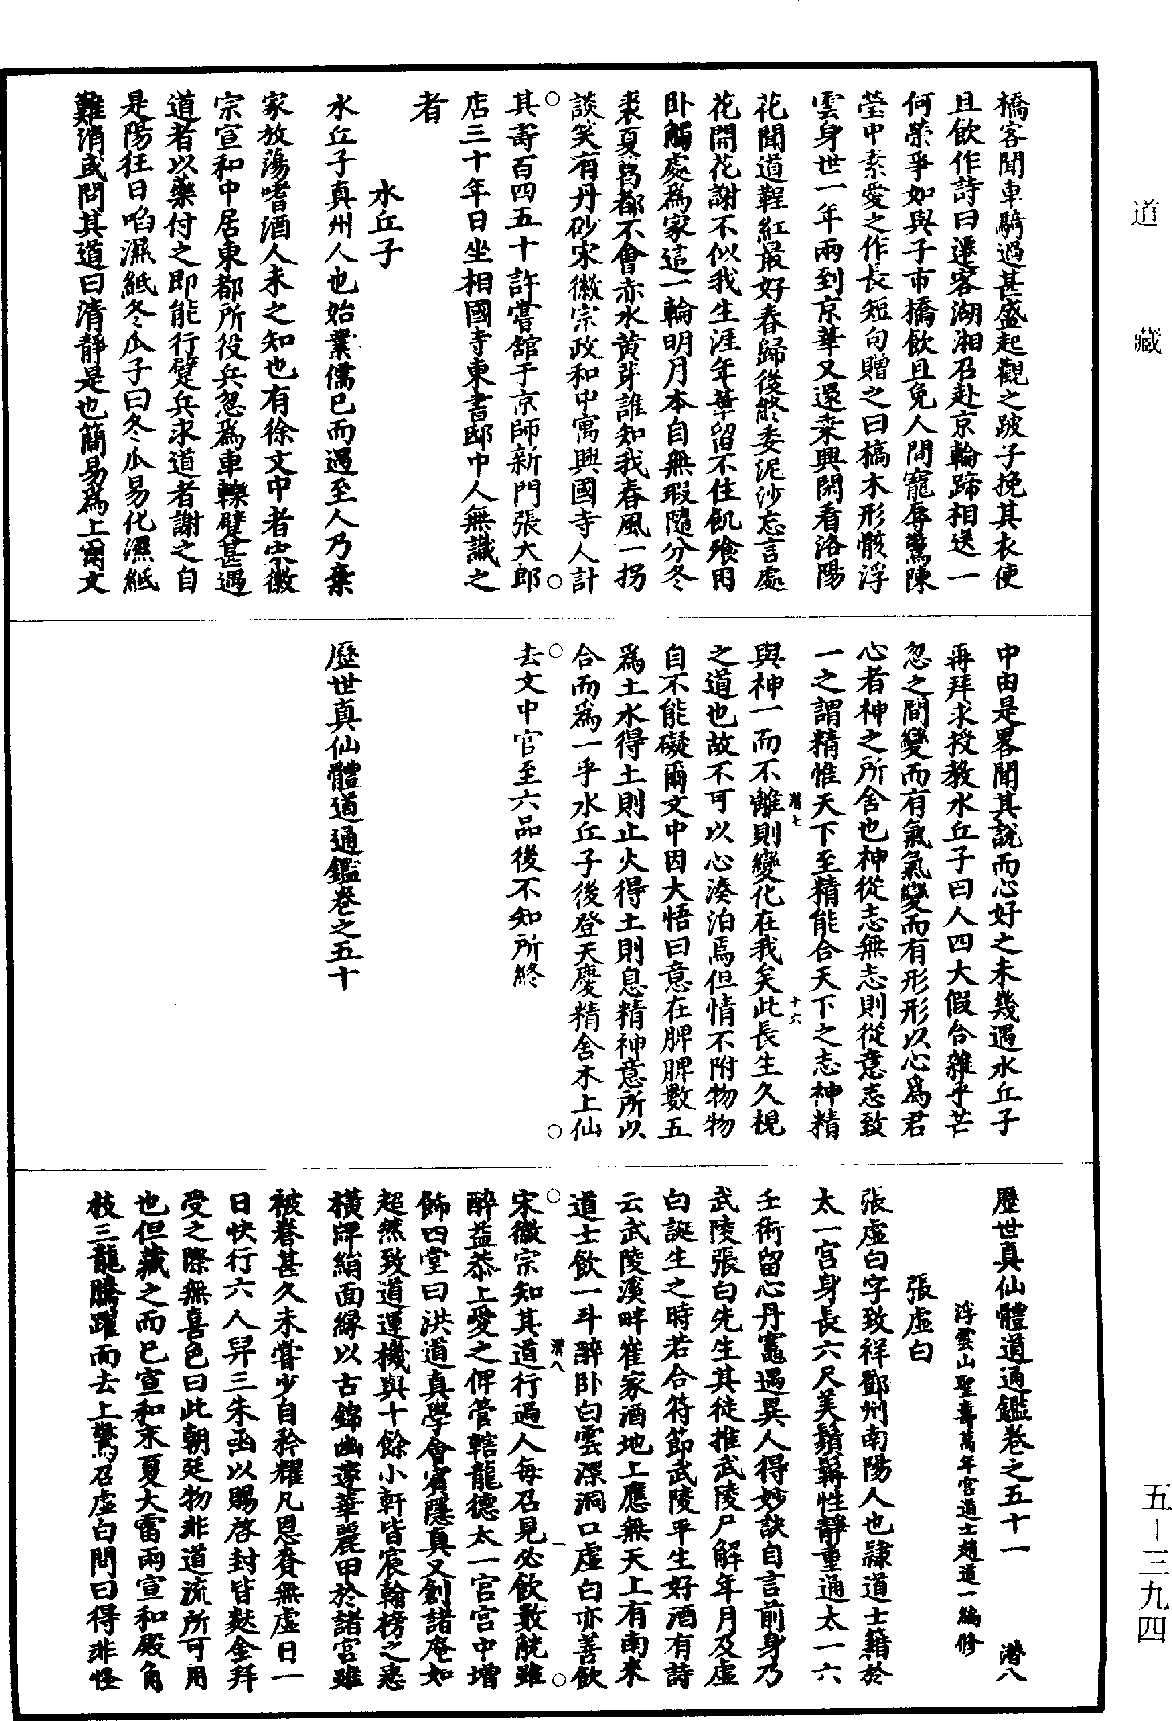 道藏
五—三九四
橋客聞車騎過甚盛起觀之跛子挽其衣使
且飲作詩曰遷客湖湘召赴京輪蹄相送一
何榮爭如與子市橋飲且免人間寵辱驚陳
瑩中素愛之作長短句贈之曰槁木形骸浮
雲身世一年兩到京華又還乗興閑看洛陽
花聞道鞓紅最好春歸後終委泥沙忘言處
花開花謝不似我生涯年華留不住飢飡困
卧觸處爲家這一輪明月本自無瑕隨分冬
裘夏葛都不會赤水黃芽誰知我春風一拐
談笑有丹砂宋徽宗政和中寓興國寺人計
其壽百四五十許嘗舘于京師新門張大郎
店三十年日坐相國寺東書邸中人無識之
者
水丘子
水丘子真州人也始業儒已而遇至人乃棄
家放蕩嗜酒人未之知也有徐文中者宋徽
宗宣和中居東都所役兵忽爲車轢躄甚遇
道者以藥付之即能行躄兵求道者謝之自
是陽狂日啗濕紙冬瓜子曰冬瓜易化濕紙
難消或問其道曰清靜是也簡易爲上爾文
中由是畧聞其說而心好之未幾遇水丘子
再拜求授教水丘子曰人四大假合雜乎芒
忽之間變而有氣氣變而有形形以心爲君
心者神之所舍也神從志無志則從意志致
一之謂精惟天下至精能合天下之志神精
與神一而不離則變化在我矣此長生久視
之道也故不可以心湊泊焉但情不附物物
自不能礙爾文中因大悟曰意在脾脾數五
爲土水得土則止火得土則息精神意所以
合而爲一乎水丘子後登天慶精舍木上仙
去文中官至六品後不知所終
潛七
十六
歷世真仙體道通鑑卷之五十
歷世真仙體道通鑑卷之五十一 潛八
浮雲山聖壽萬年宮道士趙道一編修
張虛白
張虛白字致祥鄧州南陽人也隷道士籍於
太一宮身長六尺美鬚髯性靜重通太一六
壬術留心丹竈遇異人得妙訣自言前身乃
武陵張白先生其徒推武陵尸解年月及虛
白誕生之時若合符節武陵平生好酒有詩
云武陵溪畔崔家酒地上應無天上有南來
道士飲一斗醉卧白雲深洞口虛白亦善飲
宋徽宗知其道行過人每召見必飲數觥雖
醉益恭上愛之俾管轄龍德太一宮宮中增
飾四堂曰洪道真學會賓隱真又創諸庵如
超然致道運機與十餘小軒皆宸翰榜之悉
橫牌絹面緣以古錦幽邃華麗甲於諸宮雖
被眷甚久未嘗少自矜耀凡恩賚無虛日一
日快行六人舁三朱函以賜啓封皆麩金拜
受之際無喜色曰此朝廷物非道流所可用
也但藏之而已宣和末夏大雷雨宣和殿角
枝三龍騰躍而去上驚召虛白問曰得非怪
潛八
一